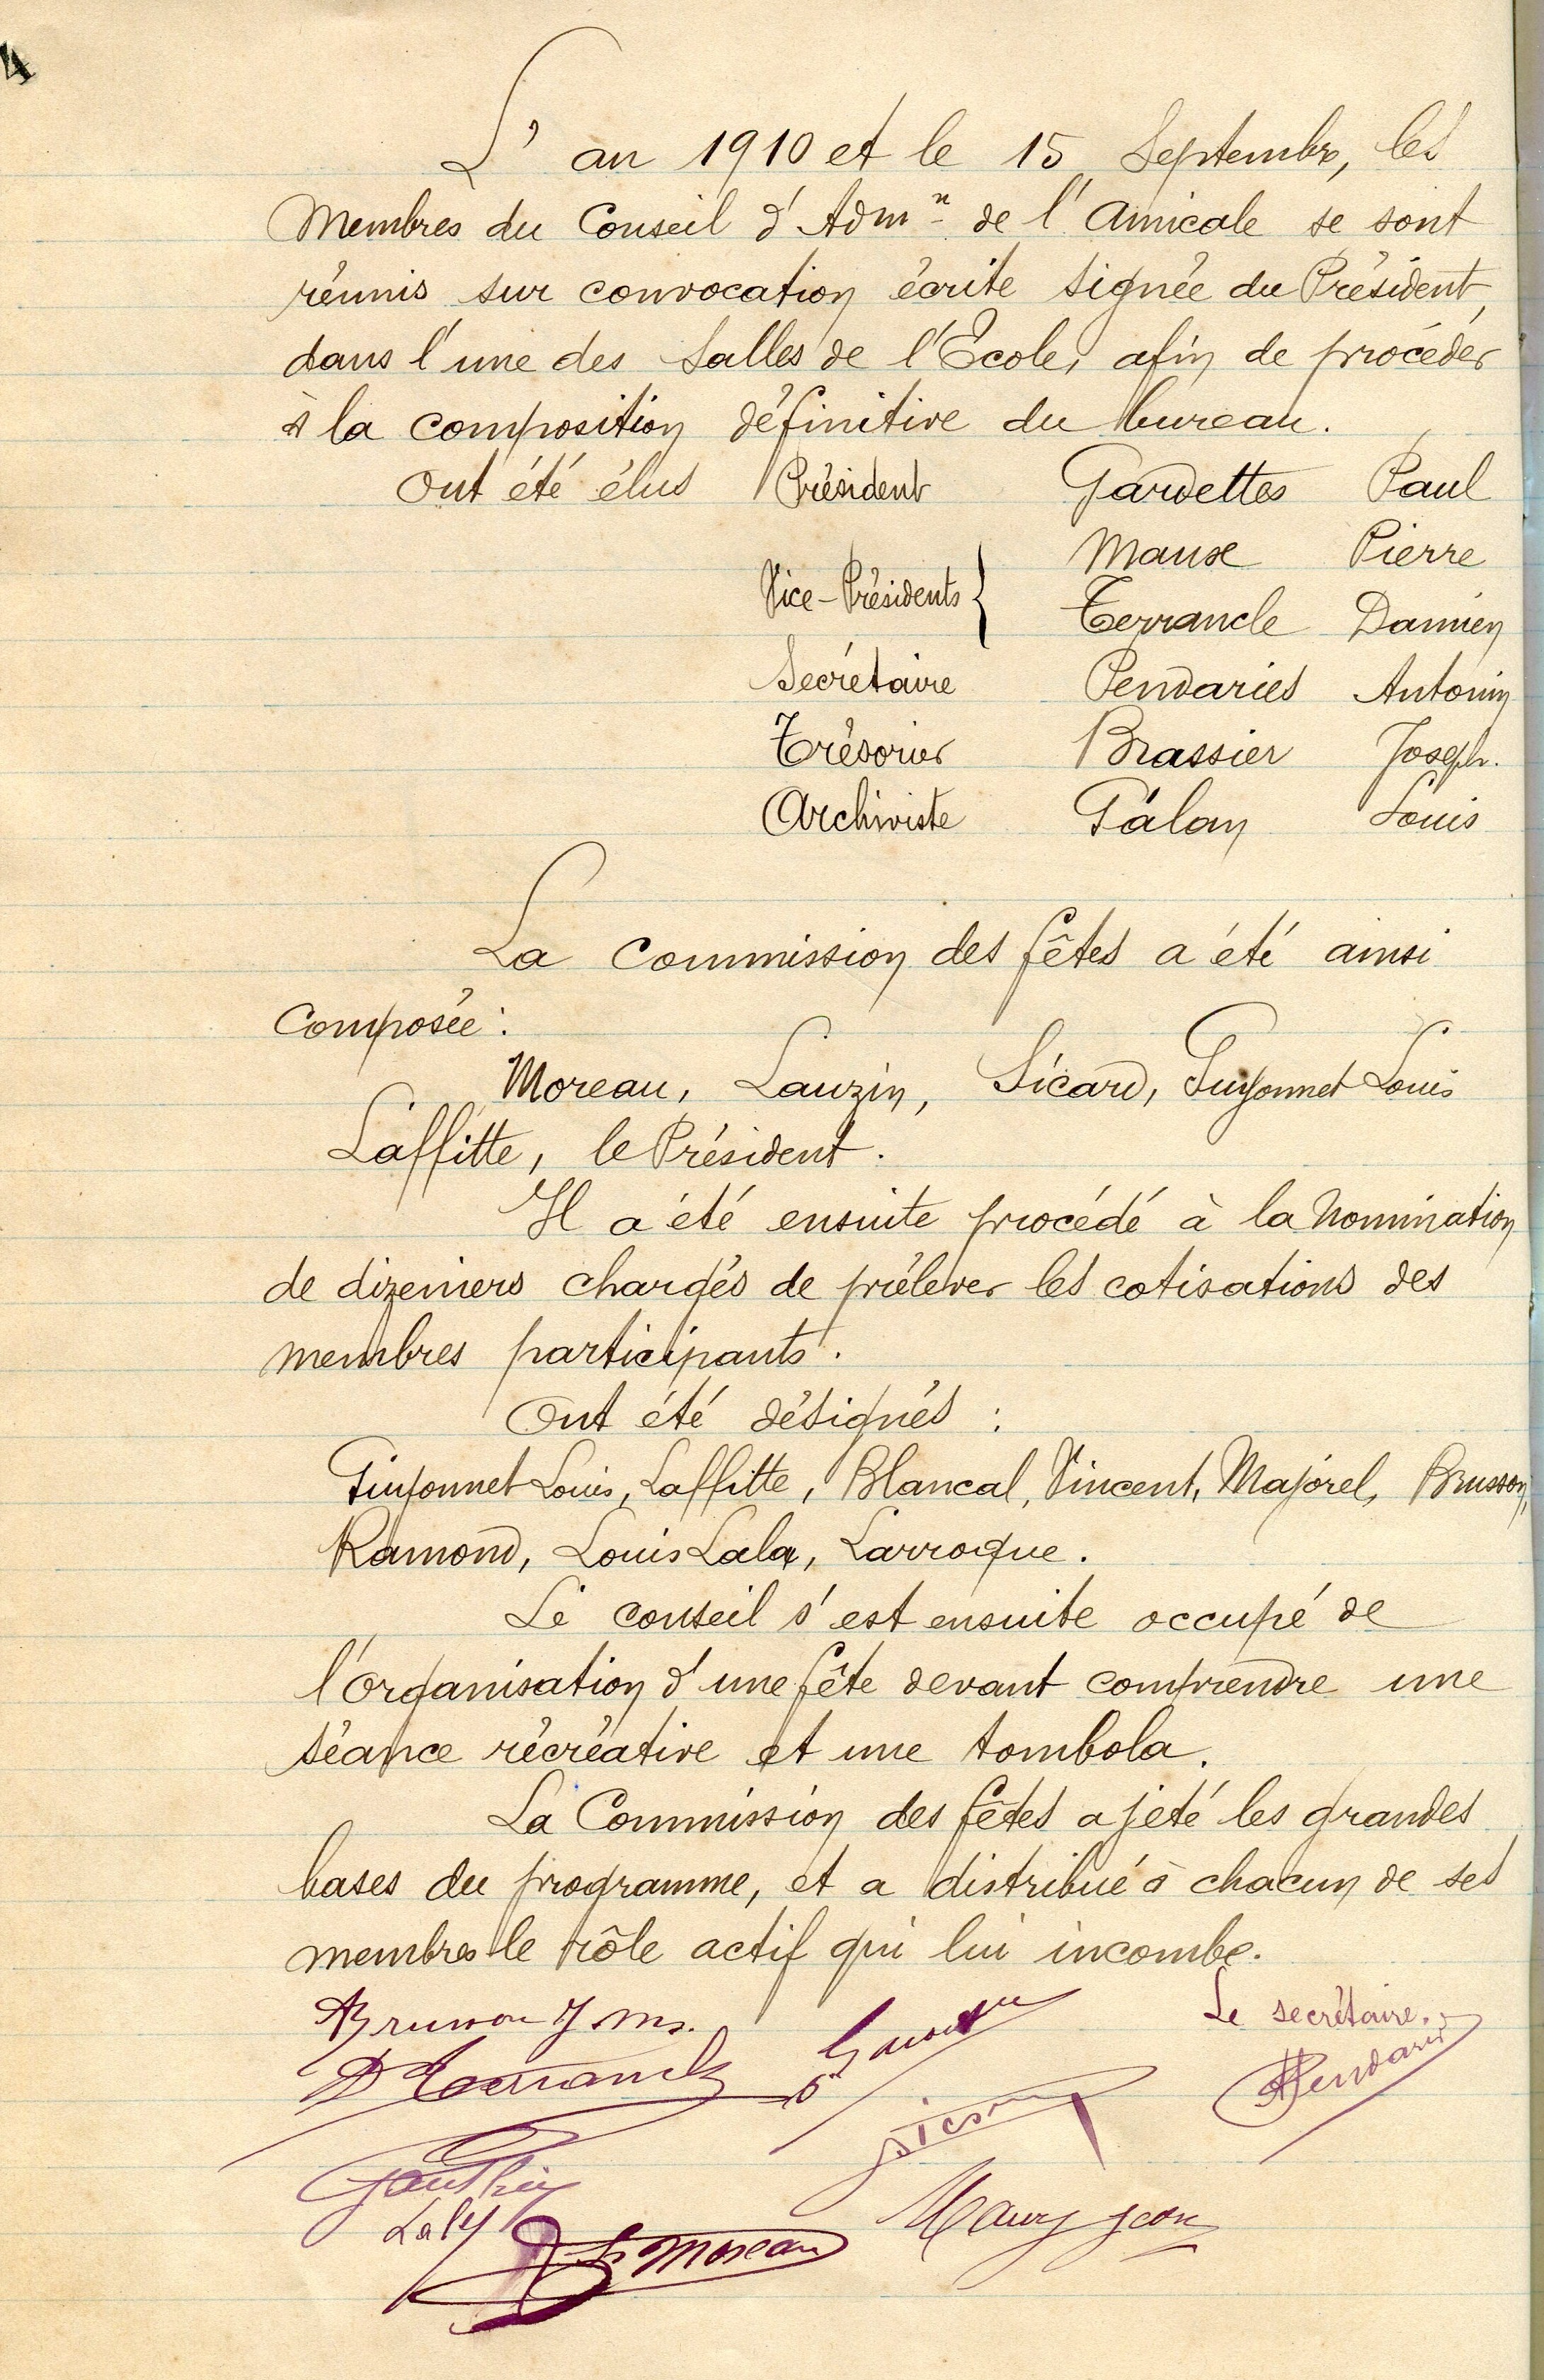 4
L' an 1910 et le 15 Septembre, les
Membres du Conseil d'Adm.n de l'Amicale se sont
réunis sur convocation écrite signée du Président,
dans l'une des Salles de l'Ecole, afin de procéder
à la composition définitive du bureau.
Ont été élus Président Gardettes Paul
Vice-Présidents { Mause Pierre
Terrancle Damien
Secrétaire Pendariès Antonin
Trésorier Brassier Joseph.
Archiviste Galan Louis
La Commission des fêtes a été ainsi
Composée :
Moreau, Lauzin, Sicard, Guyonnet Louis
Laffitte, le Président.
Il a été ensuite procédé à la nomination
de dizeniers chargés de prélever les cotisations des
membres participants.
Ont été désignés :
Guyonnet Louis, Laffitte, Blancal, Vincent, Majorel, Brusson,
Ramond, Louis Lala, Larroque.
Le conseil s'est ensuite occupé de
l'organisation d'une fête devant comprendre une
séance récréative et une tombola.
La Commission des fêtes a jeté les grandes
bases du programme, et a distribué à chacun de ses
membres le rôle actif qui lui incombe.
Le secrétaire.
D Terrancle
Pendariès
Sicard
Gauthier
Maury Jean
Moreau